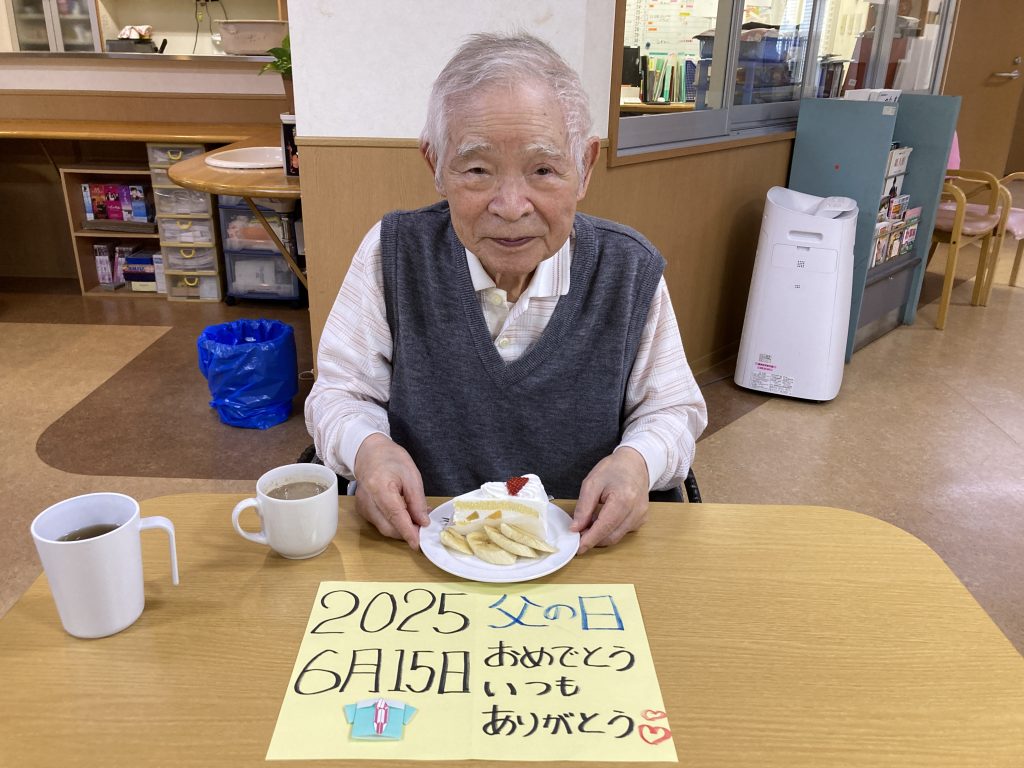 2025 父の日
6月15日 おめでとう
いつも
ありがとう